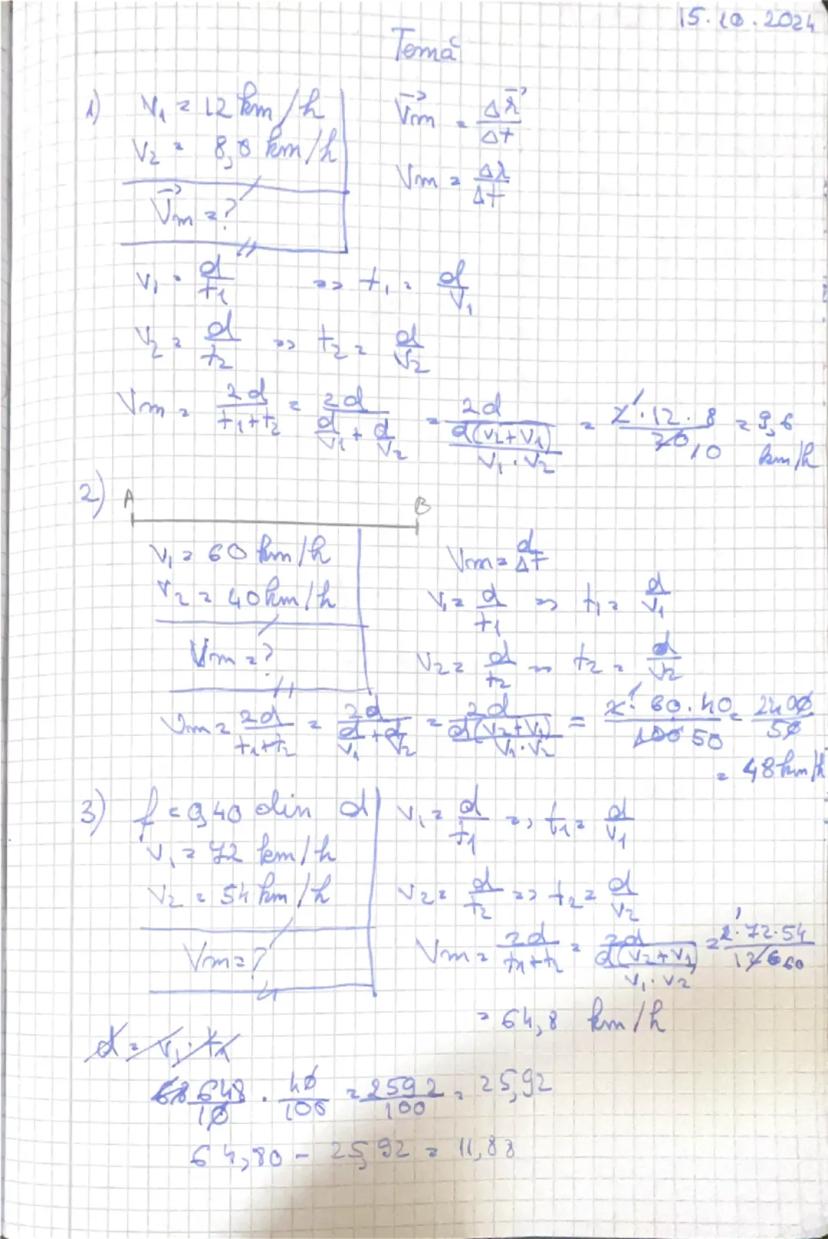 15.10.2024
Temă
1) v₁ = 12 km/h
v₂ = 8,0 km/h
v⃗m = ?
v⃗m = Δr⃗/Δt
vm = Δr/Δt
v₁ = d/t₁ => t₁ = d/v₁
v₂ = d/t₂ => t₂ = d/v₂
vm = 2d/(t₁+t₂) = 2d/(d/v₁ + d/v₂) = 2d/(d(v₂+v₁)/(v₁·v₂)) = 2·12·8/20 10 = 9,6 km/h
2) A B
v₁ = 60 km/h
v₂ = 40 km/h
vm = ?
vm = d/Δt
v₁ = d/t₁ => t₁ = d/v₁
v₂ = d/t₂ => t₂ = d/v₂
vm = 2d/(t₁+t₂) = 2d/(d/v₁ + d/v₂) = 2d/(d(v₂+v₁)/(v₁·v₂)) = 2·60·40/100 50 = 2400/50
= 48 km/h
3) f = 0,40 din d
v₁ = 72 km/h
v₂ = 54 km/h
vm = ?
v₁ = d/t₁ => t₁ = d/v₁
v₂ = d/t₂ => t₂ = d/v₂
vm = 2d/(t₁+t₂) = 2d/(d(v₂+v₁)/(v₁·v₂)) = 2·72·54/126 60
= 64,8 km/h
d = v₁·t₁
648/10 · 40/100 = 2592/100 = 25,92
64,80 - 25,92 = 11,88